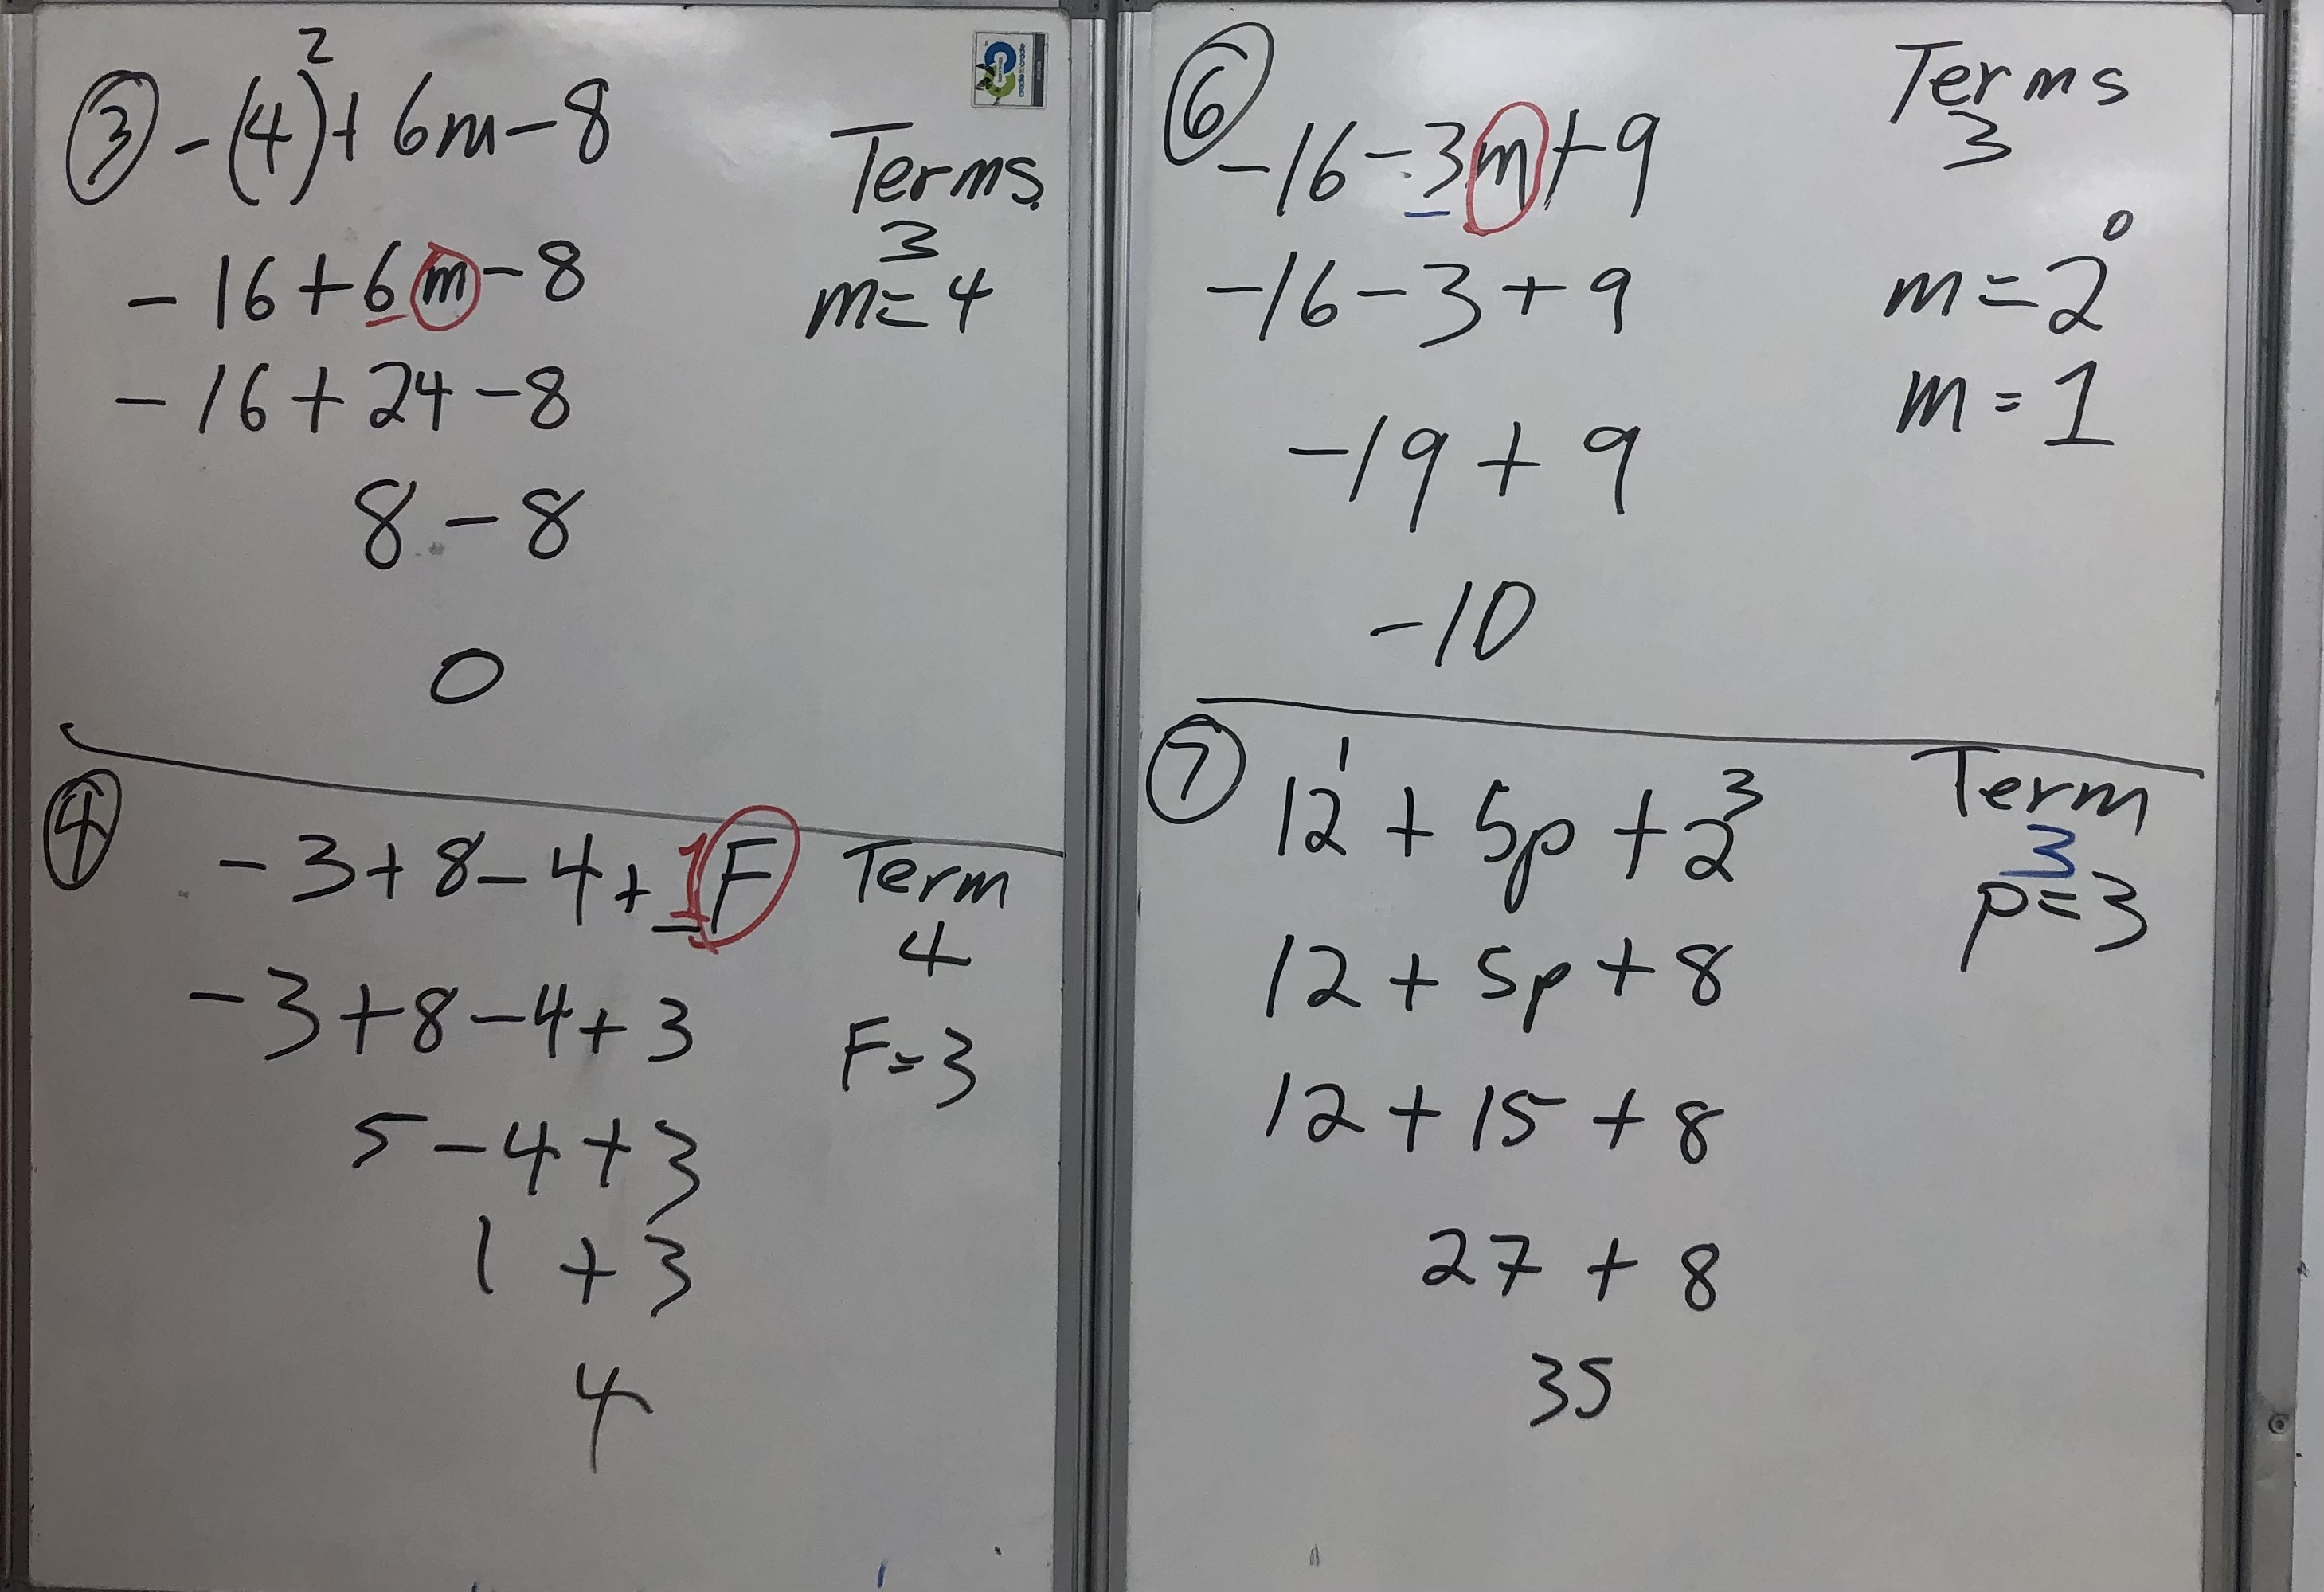 ③ -(4)² + 6m - 8
Terms
3
m = 4
-16 + 6m - 8
-16 + 24 - 8
8 - 8
0
④ -3 + 8 - 4 + 1F
Term
4
F = 3
-3 + 8 - 4 + 3
5 - 4 + 3
1 + 3
4
⑥ -16 - 3m + 9
Terms
3
m = 2⁰
m = 1
-16 - 3 + 9
-19 + 9
-10
⑦ 12¹ + 5p + 2³
Term
3
p = 3
12 + 5p + 8
12 + 15 + 8
27 + 8
35